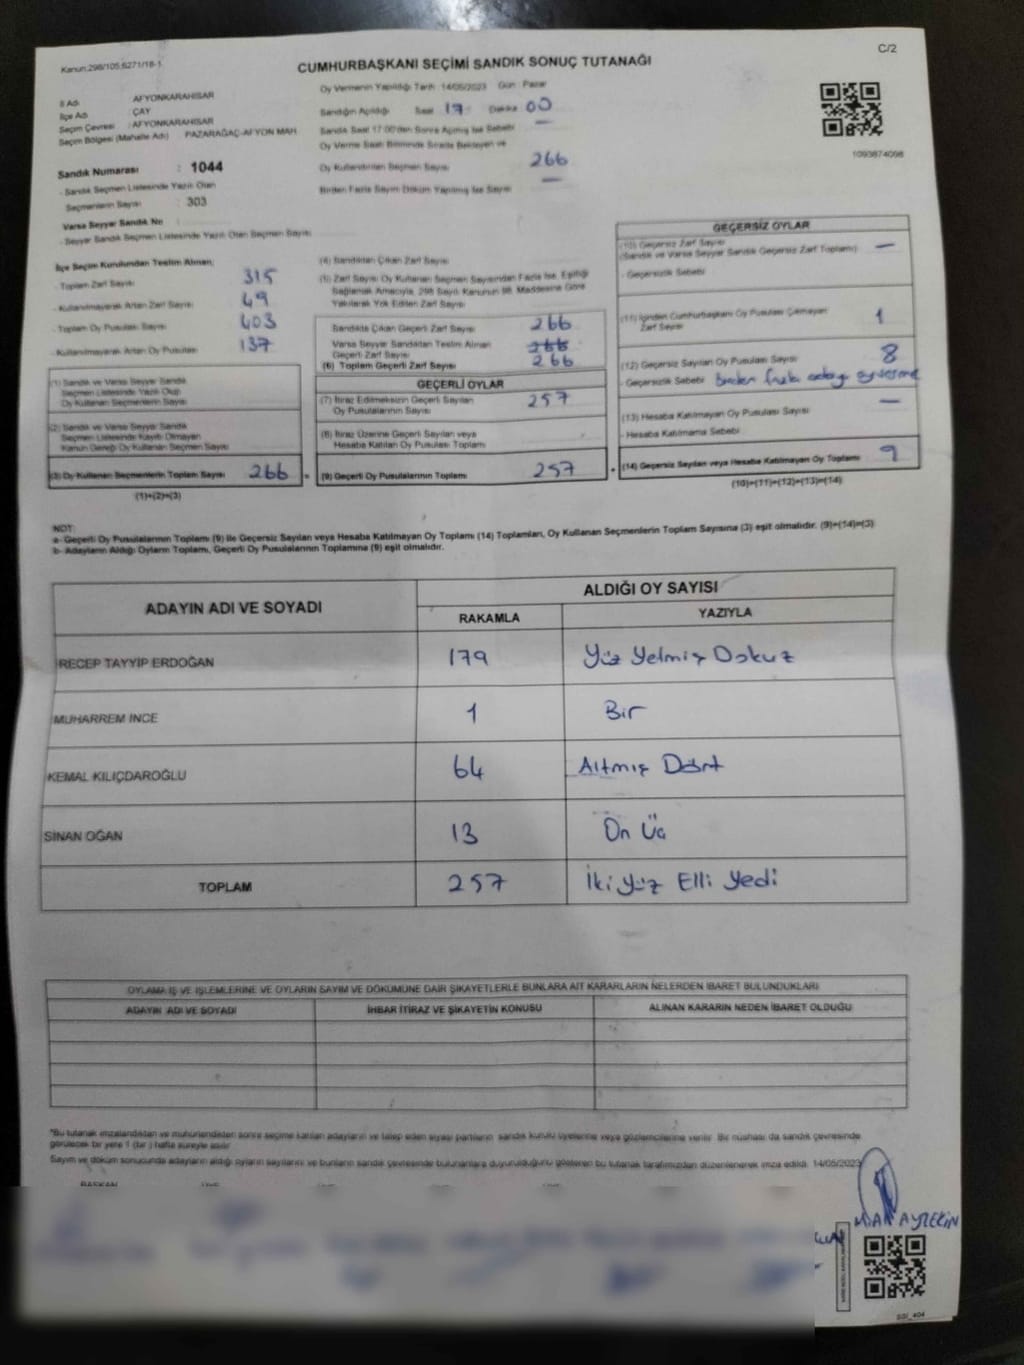 C/2
Kanun:298/105,6271/18-1
CUMHURBAŞKANI SEÇİMİ SANDIK SONUÇ TUTANAĞI
İl Adı : AFYONKARAHİSAR
İlçe Adı : ÇAY
Seçim Çevresi : AFYONKARAHİSAR
Seçim Bölgesi (Mahalle Adı) : PAZARAĞAÇ-AFYON MAH
Sandık Numarası : 1044
- Sandık Seçmen Listesinde Yazılı Olan
Seçmenlerin Sayısı : 303
Varsa Seyyar Sandık No
- Seyyar Sandık Seçmen Listesinde Yazılı Olan Seçmen Sayısı
Oy Vermenin Yapıldığı Tarih :14/05/2023 Gün : Pazar
Sandığın Açıldığı Saat 17 Dakika 00
Sandık Saat 17:00'den Sonra Açılmış İse Sebebi —
Oy Verme Saati Bitiminde Sırada Bekleyen ve
Oy Kullandırılan Seçmen Sayısı 266
Birden Fazla Sayım Döküm Yapılmış İse Sayısı —
1093874098
İlçe Seçim Kurulundan Teslim Alınan;
- Toplam Zarf Sayısı 315
- Kullanılmayarak Artan Zarf Sayısı 49
- Toplam Oy Pusulası Sayısı 403
- Kullanılmayarak Artan Oy Pusulası 137
(1) Sandık ve Varsa Seyyar Sandık
Seçmen Listesinde Yazılı Olup
Oy Kullanan Seçmenlerin Sayısı
(2) Sandık ve Varsa Seyyar Sandık
Seçmen Listesinde Kayıtlı Olmayan
Kanun Gereği Oy Kullanan Seçmen Sayısı
(3) Oy Kullanan Seçmenlerin Toplam Sayısı 266
(1)+(2)=(3)
(4) Sandıktan Çıkan Zarf Sayısı
(5) Zarf Sayısı Oy Kullanan Seçmen Sayısından Fazla İse, Eşitliği
Sağlamak Amacıyla, 298 Sayılı Kanunun 98. Maddesine Göre
Yakılarak Yok Edilen Zarf Sayısı
Sandıkta Çıkan Geçerli Zarf Sayısı 266
Varsa Seyyar Sandıktan Teslim Alınan
Geçerli Zarf Sayısı 266
(6) Toplam Geçerli Zarf Sayısı 266
GEÇERLİ OYLAR
(7) İtiraz Edilmeksizin Geçerli Sayılan
Oy Pusulalarının Sayısı 257
(8) İtiraz Üzerine Geçerli Sayılan veya
Hesaba Katılan Oy Pusulası Toplamı
(9) Geçerli Oy Pusulalarının Toplamı 257
GEÇERSİZ OYLAR
(10) Geçersiz Zarf Sayısı —
(Sandık ve Varsa Seyyar Sandık Geçersiz Zarf Toplamı)
- Geçersizlik Sebebi
(11) İçinden Cumhurbaşkanı Oy Pusulası Çıkmayan
Zarf Sayısı 1
(12) Geçersiz Sayılan Oy Pusulası Sayısı 8
- Geçersizlik Sebebi
(13) Hesaba Katılmayan Oy Pusulası Sayısı —
- Hesaba Katılmama Sebebi
(14) Geçersiz Sayılan veya Hesaba Katılmayan Oy Toplamı 9
(10)+(11)+(12)+(13)=(14)
NOT:
a- Geçerli Oy Pusulaları Toplamı (9) ile Geçersiz Sayılan veya Hesaba Katılmayan Oy Toplamı (14) Toplamları, Oy Kullanan Seçmenlerin Toplam Sayısına (3) eşit olmalıdır. (9)+(14)=(3)
b- Adayların Aldığı Oyların Toplamı, Geçerli Oy Pusulalarının Toplamına (9) eşit olmalıdır.
ADAYIN ADI VE SOYADI
ALDIĞI OY SAYISI
RAKAMLA YAZIYLA
RECEP TAYYİP ERDOĞAN 179 Yüz Yetmiş Dokuz
MUHARREM İNCE 1 Bir
KEMAL KILIÇDAROĞLU 64 Altmış Dört
SİNAN OĞAN 13 On Üç
TOPLAM 257 İki Yüz Elli Yedi
OYLAMA İŞ VE İŞLEMLERİNE VE OYLARIN SAYIM VE DÖKÜMÜNE DAİR ŞİKAYETLERLE BUNLARA AİT KARARLARIN NELERDEN İBARET BULUNDUKLARI
ADAYIN ADI VE SOYADI İHBAR İTİRAZ VE ŞİKAYETİN KONUSU ALINAN KARARIN NEDEN İBARET OLDUĞU
*Bu tutanak imzalandıktan ve mühürlendikten sonra seçime katılan adayların ve talep eden siyasi partilerin sandık kurulu üyelerine veya gözlemcilerine verilir. Bir nüshası da sandık çevresinde
görülecek bir yere 1 (bir) hafta süreyle asılır.
Sayım ve döküm sonucunda adayların aldığı oyların sayılarını ve bunların sandık çevresinde bulunanlara duyurulduğunu gösteren bu tutanak tarafımızdan düzenlenerek imza edildi. 14/05/2023
BAŞKAN